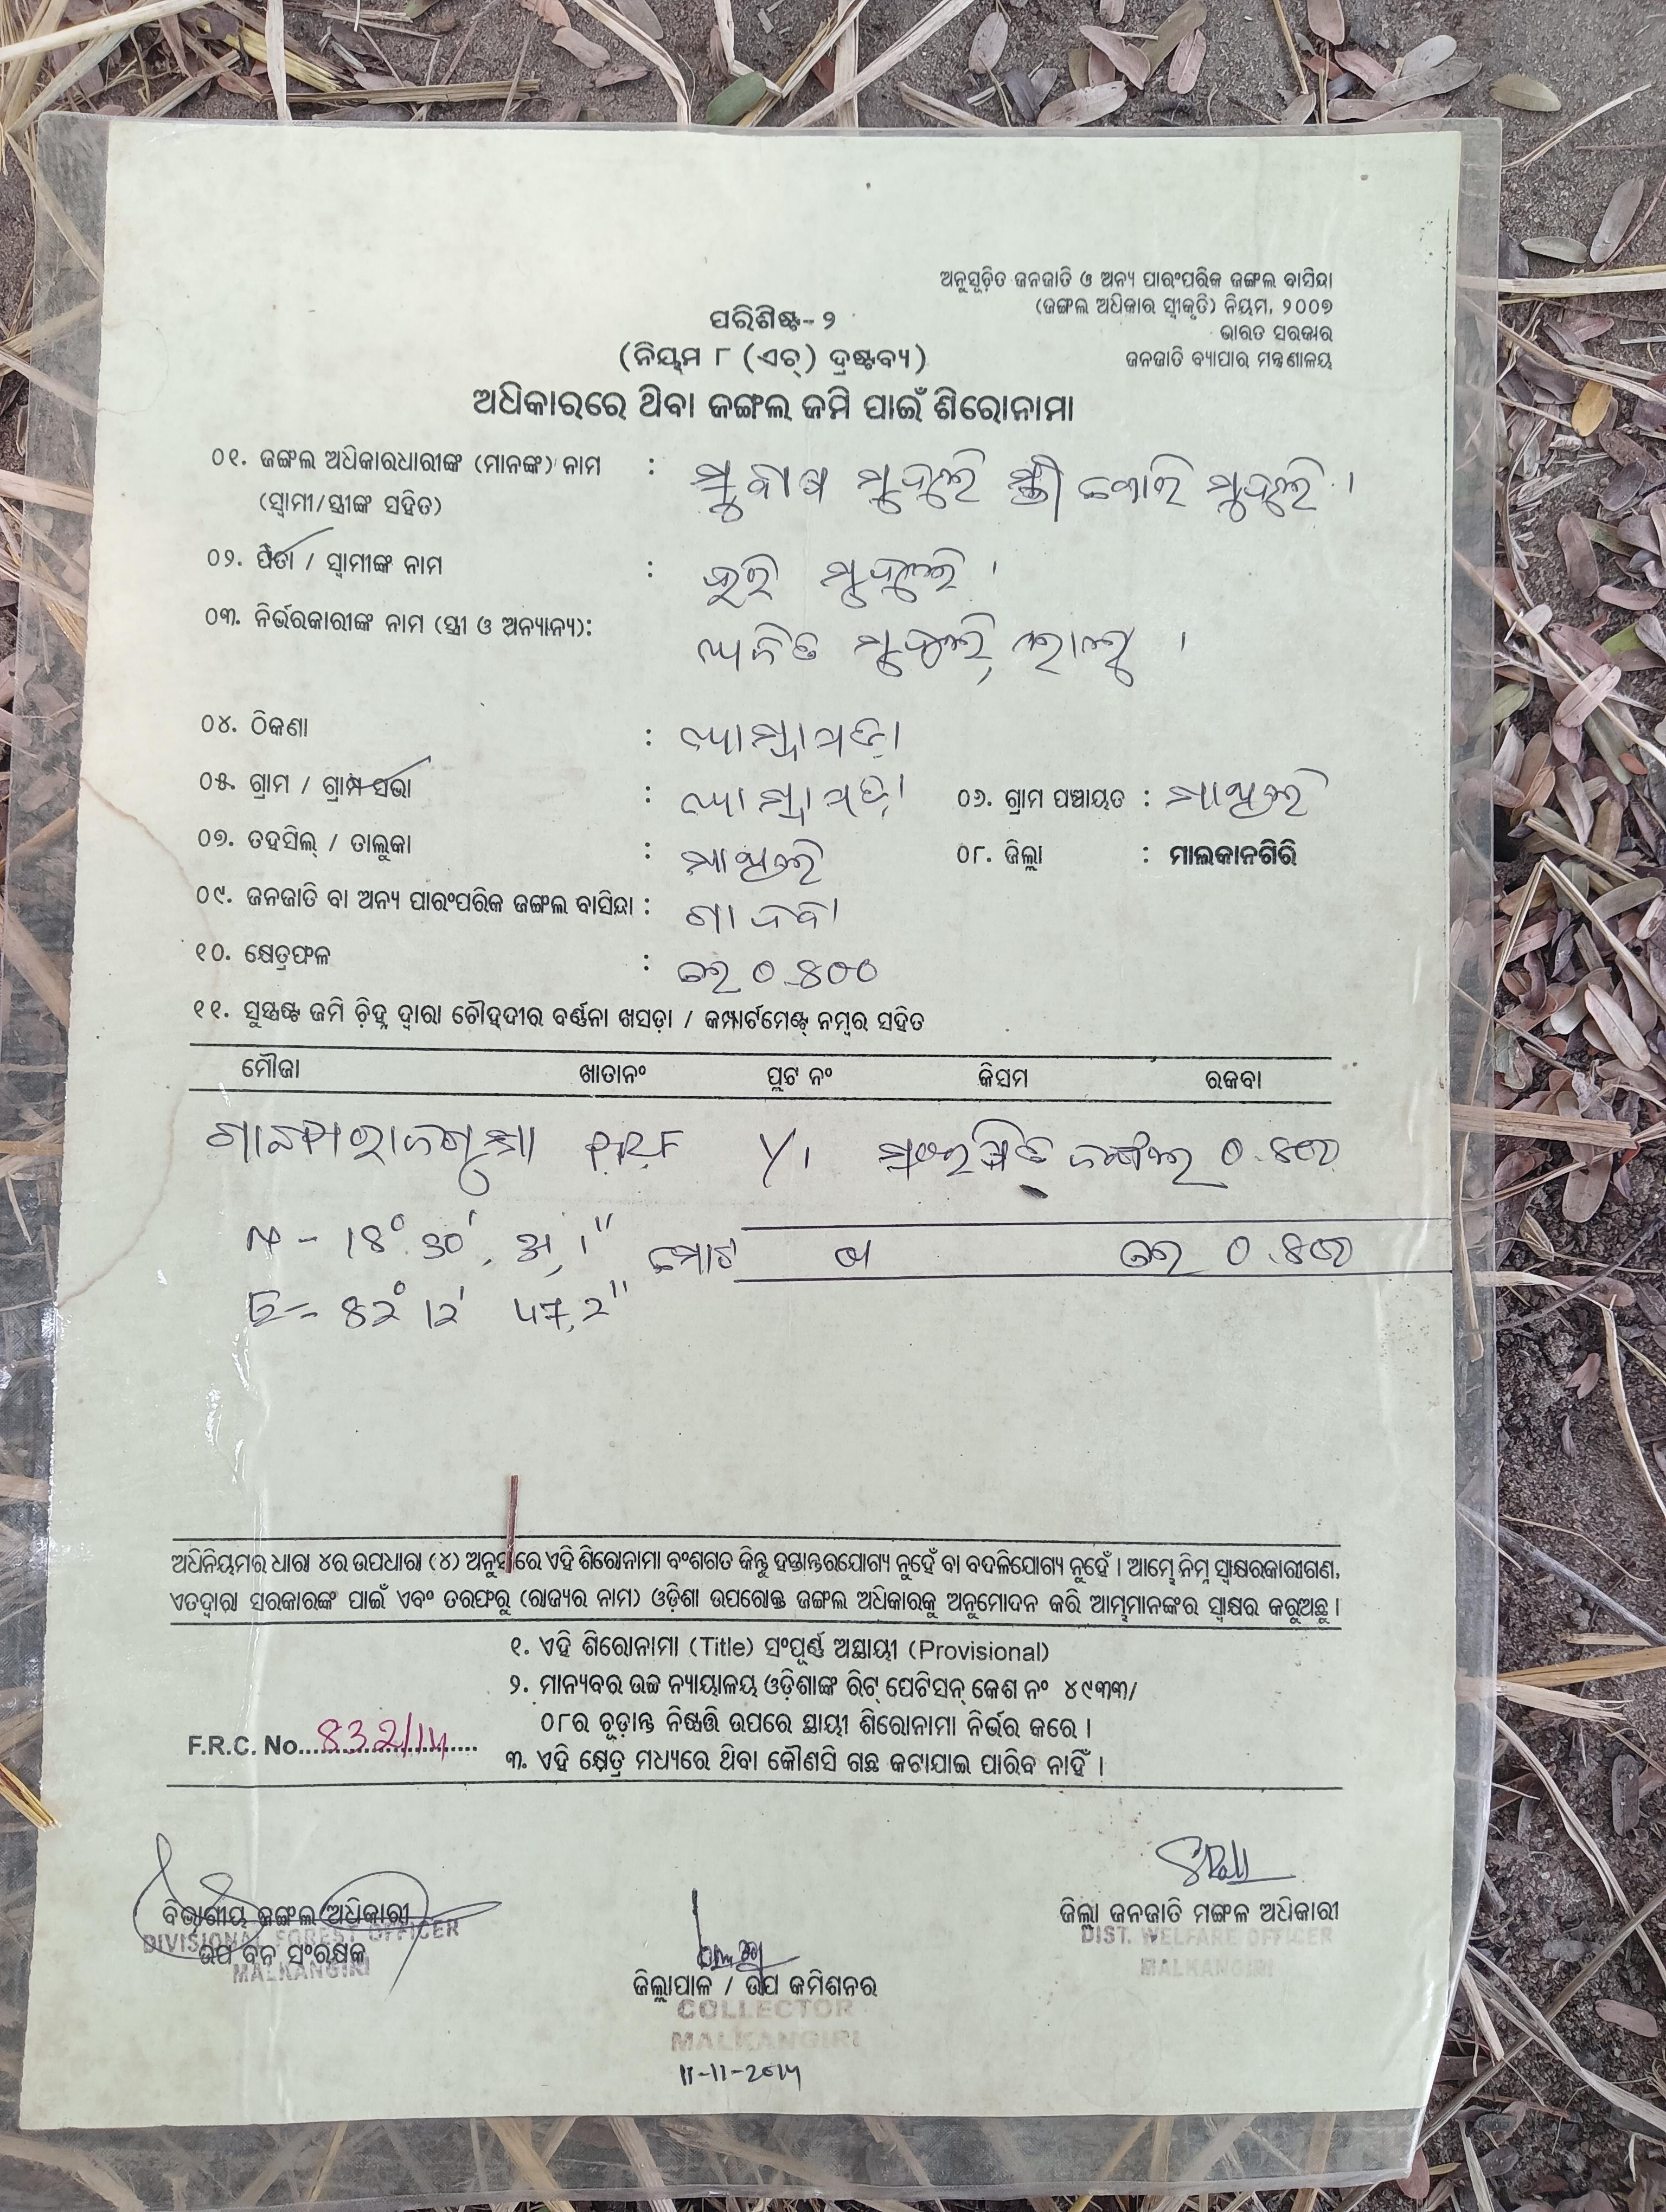 ଅନୁସୂଚିତ ଜନଜାତି ଓ ଅନ୍ୟ ପାରଂପରିକ ଜଙ୍ଗଲ ବାସିନ୍ଦା
(ଜଙ୍ଗଲ ଅଧିକାର ସ୍ୱୀକୃତି) ନିୟମ, ୨୦୦୭
ଭାରତ ସରକାର
ଜନଜାତି ବ୍ୟାପାର ମନ୍ତ୍ରଣାଳୟ
ପରିଶିଷ୍ଟ-୨
(ନିୟମ ୮ (ଏଚ୍) ଦ୍ରଷ୍ଟବ୍ୟ)
ଅଧିକାରରେ ଥିବା ଜଙ୍ଗଲ ଜମି ପାଇଁ ଶିରୋନାମା
୦୧. ଜଙ୍ଗଲ ଅଧିକାରଧାରୀଙ୍କ (ମାନଙ୍କ) ନାମ : ମୁଦୁଲି ସ୍ତ୍ରୀ ମୁଦୁଲି ।
(ସ୍ୱାମୀ/ସ୍ତ୍ରୀଙ୍କ ସହିତ)
୦୨. ପିତା / ସ୍ୱାମୀଙ୍କ ନାମ : ମୁଦୁଲି ।
୦୩. ନିର୍ଭରକାରୀଙ୍କ ନାମ (ସ୍ତ୍ରୀ ଓ ଅନ୍ୟାନ୍ୟ): ମୁଦୁଲି,
୦୪. ଠିକଣା :
୦୫. ଗ୍ରାମ / ଗ୍ରାମ ସଭା : ୦୬. ଗ୍ରାମ ପଞ୍ଚାୟତ : ମାଥିଲି
୦୭. ତହସିଲ୍ / ତାଲୁକା : ମାଥିଲି ୦୮. ଜିଲ୍ଲା : ମାଲକାନଗିରି
୦୯. ଜନଜାତି ବା ଅନ୍ୟ ପାରଂପରିକ ଜଙ୍ଗଲ ବାସିନ୍ଦା : ଗାଦବା
୧୦. କ୍ଷେତ୍ରଫଳ : ହେ ୦.୪୦୦
୧୧. ସୁସ୍ପଷ୍ଟ ଜମି ଚିହ୍ନ ଦ୍ୱାରା ଚୌହଦୀର ବର୍ଣ୍ଣନା ଖସଡ଼ା / କମ୍ପାର୍ଟମେଣ୍ଟ୍ ନମ୍ବର ସହିତ
ମୌଜା ଖାତାନଂ ପ୍ଲଟ ନଂ କିସମ ରକବା
P.R.F
N - 18° 30' ମୋଟ
E = 82° 12' 47.2"
ଅଧିନିୟମର ଧାରା ୪ର ଉପଧାରା (୪) ଅନୁସାରେ ଏହି ଶିରୋନାମା ବଂଶଗତ କିନ୍ତୁ ହସ୍ତାନ୍ତରଯୋଗ୍ୟ ନୁହେଁ ବା ବଦଳିଯୋଗ୍ୟ ନୁହେଁ । ଆମ୍ଭେ ନିମ୍ନ ସ୍ୱାକ୍ଷରକାରୀଗଣ,
ଏତଦ୍ୱାରା ସରକାରଙ୍କ ପାଇଁ ଏବଂ ତରଫରୁ (ରାଜ୍ୟର ନାମ) ଓଡ଼ିଶା ଉପରୋକ୍ତ ଜଙ୍ଗଲ ଅଧିକାରକୁ ଅନୁମୋଦନ କରି ଆମ୍ଭମାନଙ୍କର ସ୍ୱାକ୍ଷର କରୁଅଛୁ ।
୧. ଏହି ଶିରୋନାମା (Title) ସଂପୂର୍ଣ୍ଣ ଅସ୍ଥାୟୀ (Provisional)
୨. ମାନ୍ୟବର ଉଚ୍ଚ ନ୍ୟାୟାଳୟ ଓଡ଼ିଶାଙ୍କ ରିଟ୍ ପେଟିସନ୍ କେଶ ନଂ ୪୯୩୩/
୦୮ର ଚୂଡ଼ାନ୍ତ ନିଷ୍ପତ୍ତି ଉପରେ ସ୍ଥାୟୀ ଶିରୋନାମା ନିର୍ଭର କରେ ।
F.R.C. No. 832/14
୩. ଏହି କ୍ଷେତ୍ର ମଧ୍ୟରେ ଥିବା କୌଣସି ଗଛ କଟାଯାଇ ପାରିବ ନାହିଁ ।
ବିଭାଗୀୟ ଜଙ୍ଗଲ ଅଧିକାରୀ
DIVISIONAL FOREST OFFICER
ଉପ ବନ ସଂରକ୍ଷକ
MALKANGIRI
ଜିଲ୍ଲାପାଳ / ଉପ କମିଶନର
COLLECTOR
MALKANGIRI
11-11-2014
ଜିଲ୍ଲା ଜନଜାତି ମଙ୍ଗଳ ଅଧିକାରୀ
DIST. WELFARE OFFICER
MALKANGIRI